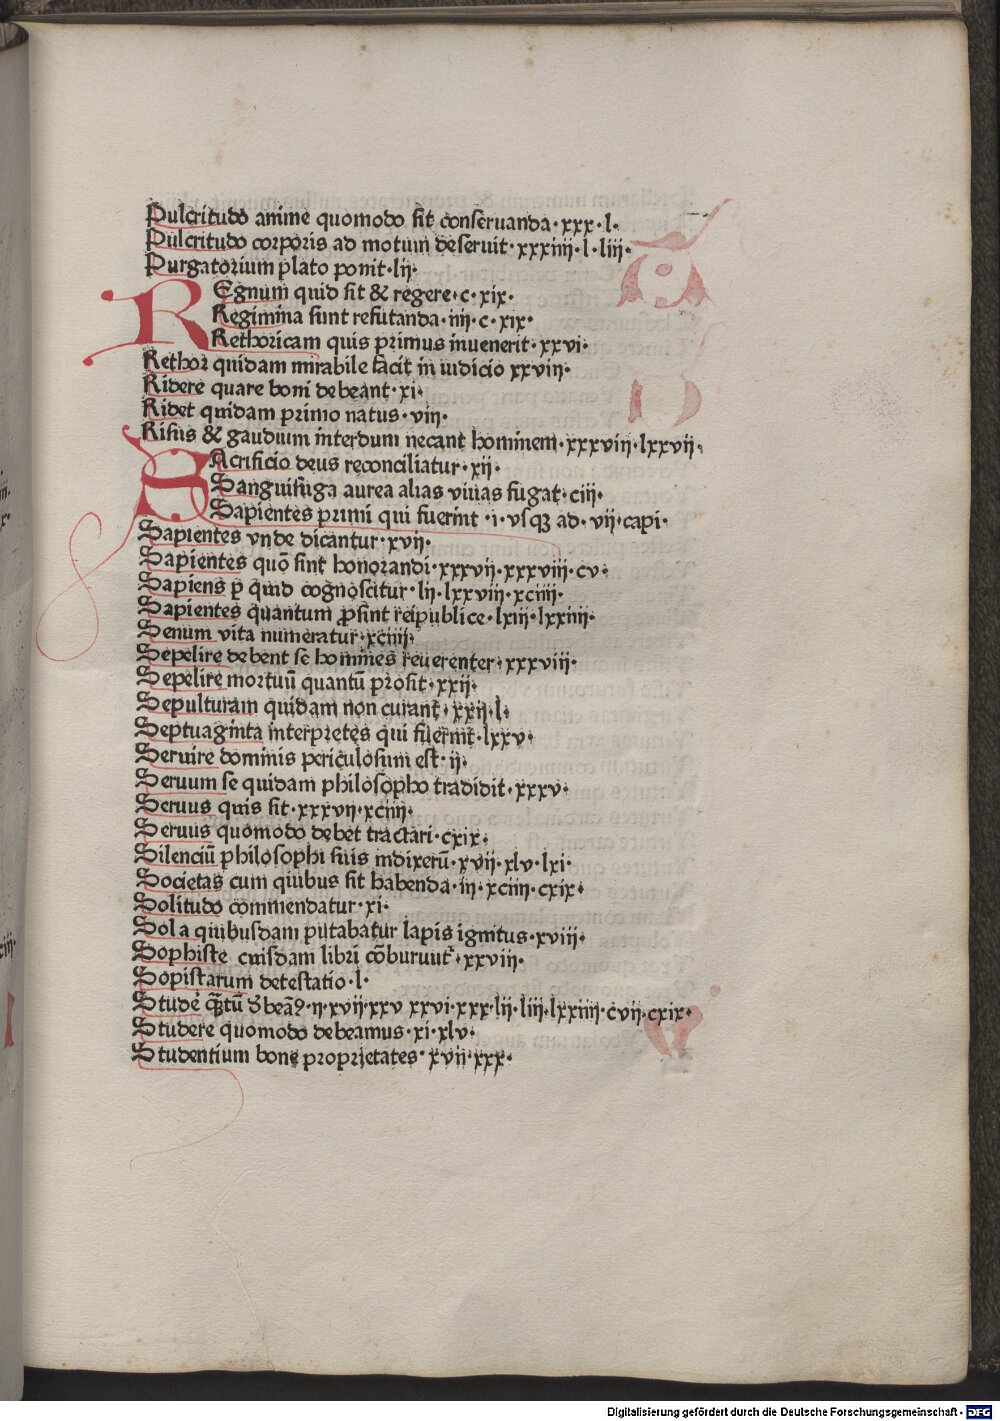 Pulcritudo anime quomodo sit conseruanda· xxx· l·
Pulcritudo corporis ad motum deseruit· xxxiiii· l· liii·
Purgatorium plato ponit· lii·
REgnum quid sit & regere· c· xix·
Regimina sunt refutanda· iiii· c· xix·
Rethoricam quis primus inuenerit· xxvi·
Rethor quidam mirabile facit in iudicio xxviii·
Ridere quare boni debeant· xi·
Ridet quidam primo natus· viii·
Risus & gaudium interdum necant hominem· xxxviii· lxxvii·
SAcrificio deus reconciliatur· xii·
Sanguisuga aurea alias viuas fugat· ciii·
Sapientes primi qui fuerint ·i· vsqꝫ ad· vii· capi·
Sapientes vnde dicantur· xvii·
Sapientes quō sint honorandi· xxxvii· xxxviii· cv·
Sapiens ꝑ quid cognoscitur· lii· lxxviii· xciiii·
Sapientes quantum ꝓsint reipublice· lxiii· lxxiiii·
Senum vita numeratur· xciiii·
Sepelire debent se homines reuerenter· xxxviii·
Sepelire mortuū quantū prosit· xxii·
Sepulturam quidam non curant· xxii· l·
Septuaginta interpretes qui fuerint· lxxv·
Seruire dominis periculosum est· ii·
Seruum se quidam philosopho tradidit· xxxv·
Seruus quis sit· xxxvii· xciiii·
Seruus quomodo debet tractari· cxix·
Silenciū philosophi suis indixerū· xvii· xlv· lxi·
Societas cum quibus sit habenda· iii· xciiii· cxix·
Solitudo commendatur· xi·
Sol a quibusdam putabatur lapis ignitus· xviii·
Sophiste cuiusdam libri cōburuut᷑· xxviii·
Sopistarum detestatio· l·
Studeꝛ̄ qͣꝫtū· ii· xvii· xxv xxvi· xxx· lii· liii· lxxiiii· cvii· cxix·
Studere quomodo debeamus· xi· xlv·
Studentium bone proprietates· xvii· xxx·
Digitalisierung gefördert durch die Deutsche Forschungsgemeinschaft - DFG